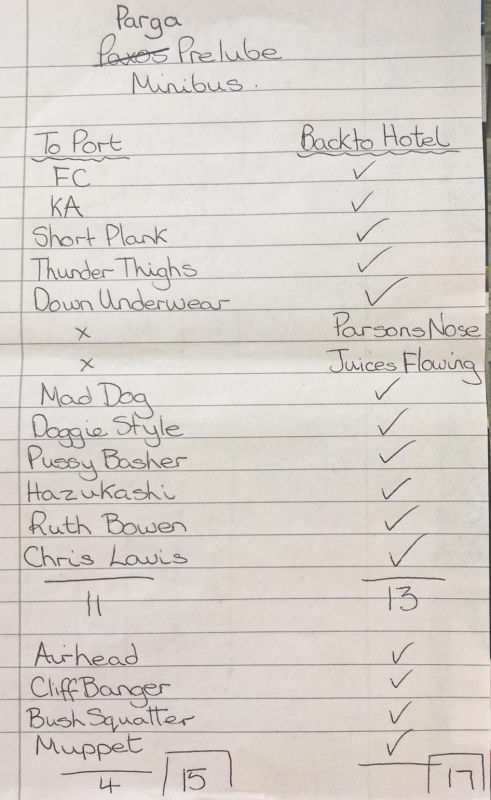 Parga
Paxos Prelube
Minibus.
To Port Back to Hotel
FC ✓
KA ✓
Short Plank ✓
Thunder Thighs ✓
Down Underwear ✓
x Parsons Nose
x Juices Flowing
Mad Dog ✓
Doggie Style ✓
Pussy Basher ✓
Hazukashi ✓
Ruth Bowen ✓
Chris Lawis ✓
11 13
Airhead ✓
Cliff Banger ✓
Bush Squatter ✓
Muppet ✓
4 15 17